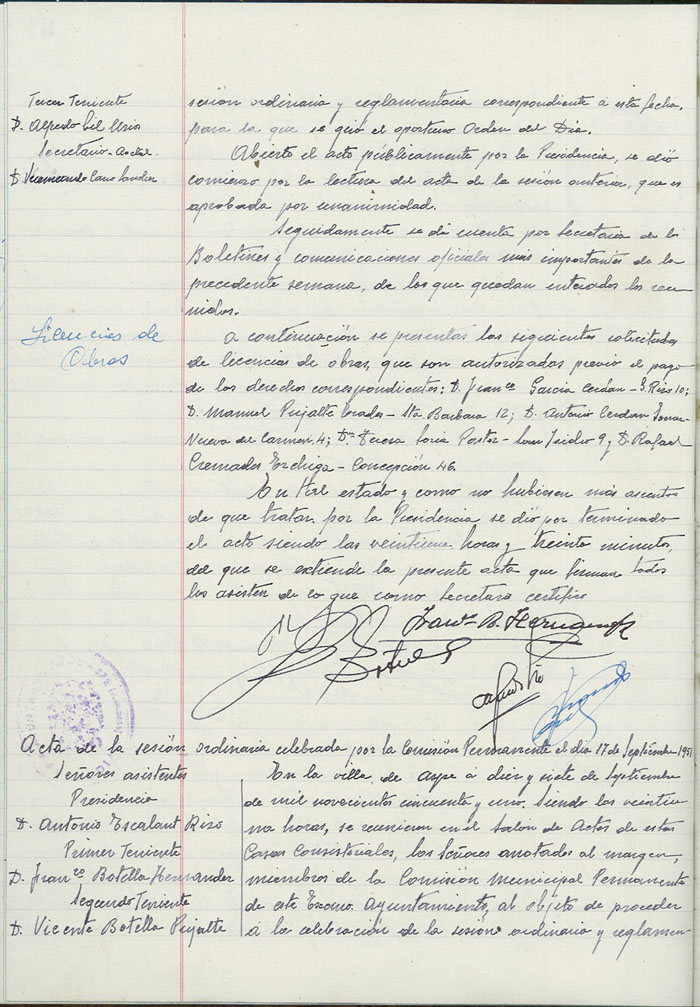 Tercer Teniente
D. Alfredo Gil Urios
Secretario-Acctal.
D. Vicencando Cano Sander
sesión ordinaria y reglamentaria correspondiente á esta fecha,
para la que se giró el oportuno Orden del Dia.
Abierto el acto públicamente por la Presidencia, se dió
comienzo por la lectura del acta de la sesión anterior, que es
aprobada por unanimidad.
Seguidamente se da cuenta por Secretaria de los
Boletines y comunicaciones oficiales más importantes de la
precedente semana, de los que quedan enterados los reu-
nidos.
Licencias de
Obras
A continuación se presentan las siguientes solicitudes
de licencias de obras, que son autorizadas previo el pago
de los derechos correspondientes: D. Franco Garcia Cerdan - G. Rizo 10;
D. Manuel Pujalte Prados - Sta. Barbara 12; D. Antonio Cerdan
Nueva del Carmen 4; Da Teresa Soria Pastor - San Isidro 9 y D. Rafael
Cremades - Concepción 46.
En tal estado y como no hubiesen más asuntos
de que tratar por la Presidencia se dió por terminado
el acto siendo las veintiuna horas y treinta minutos,
del que se extiende la presente acta que firman todos
los asisten de lo que como Secretario certifico
Franco B. Hernandez
Botella
Acta de la sesión ordinaria celebrada por la Comisión Permanente el dia 17 de Septiembre 1951
Señores asistentes
Presidencia
D. Antonio Escalant Rizo
Primer Teniente
D. Franco Botella Hernandez
Segundo Teniente
D. Vicente Botella Pujalte
En la villa de Aspe á diez y siete de Septiembre
de mil novecientos cincuenta y uno. Siendo las veintiu-
na horas, se reunieron en el Salón de Actos de estas
Casas Consistoriales, los Señores anotados al margen,
miembros de la Comisión Municipal Permanente
de este Excmo. Ayuntamiento, al objeto de proceder
á la celebración de la sesión ordinaria y reglamen-